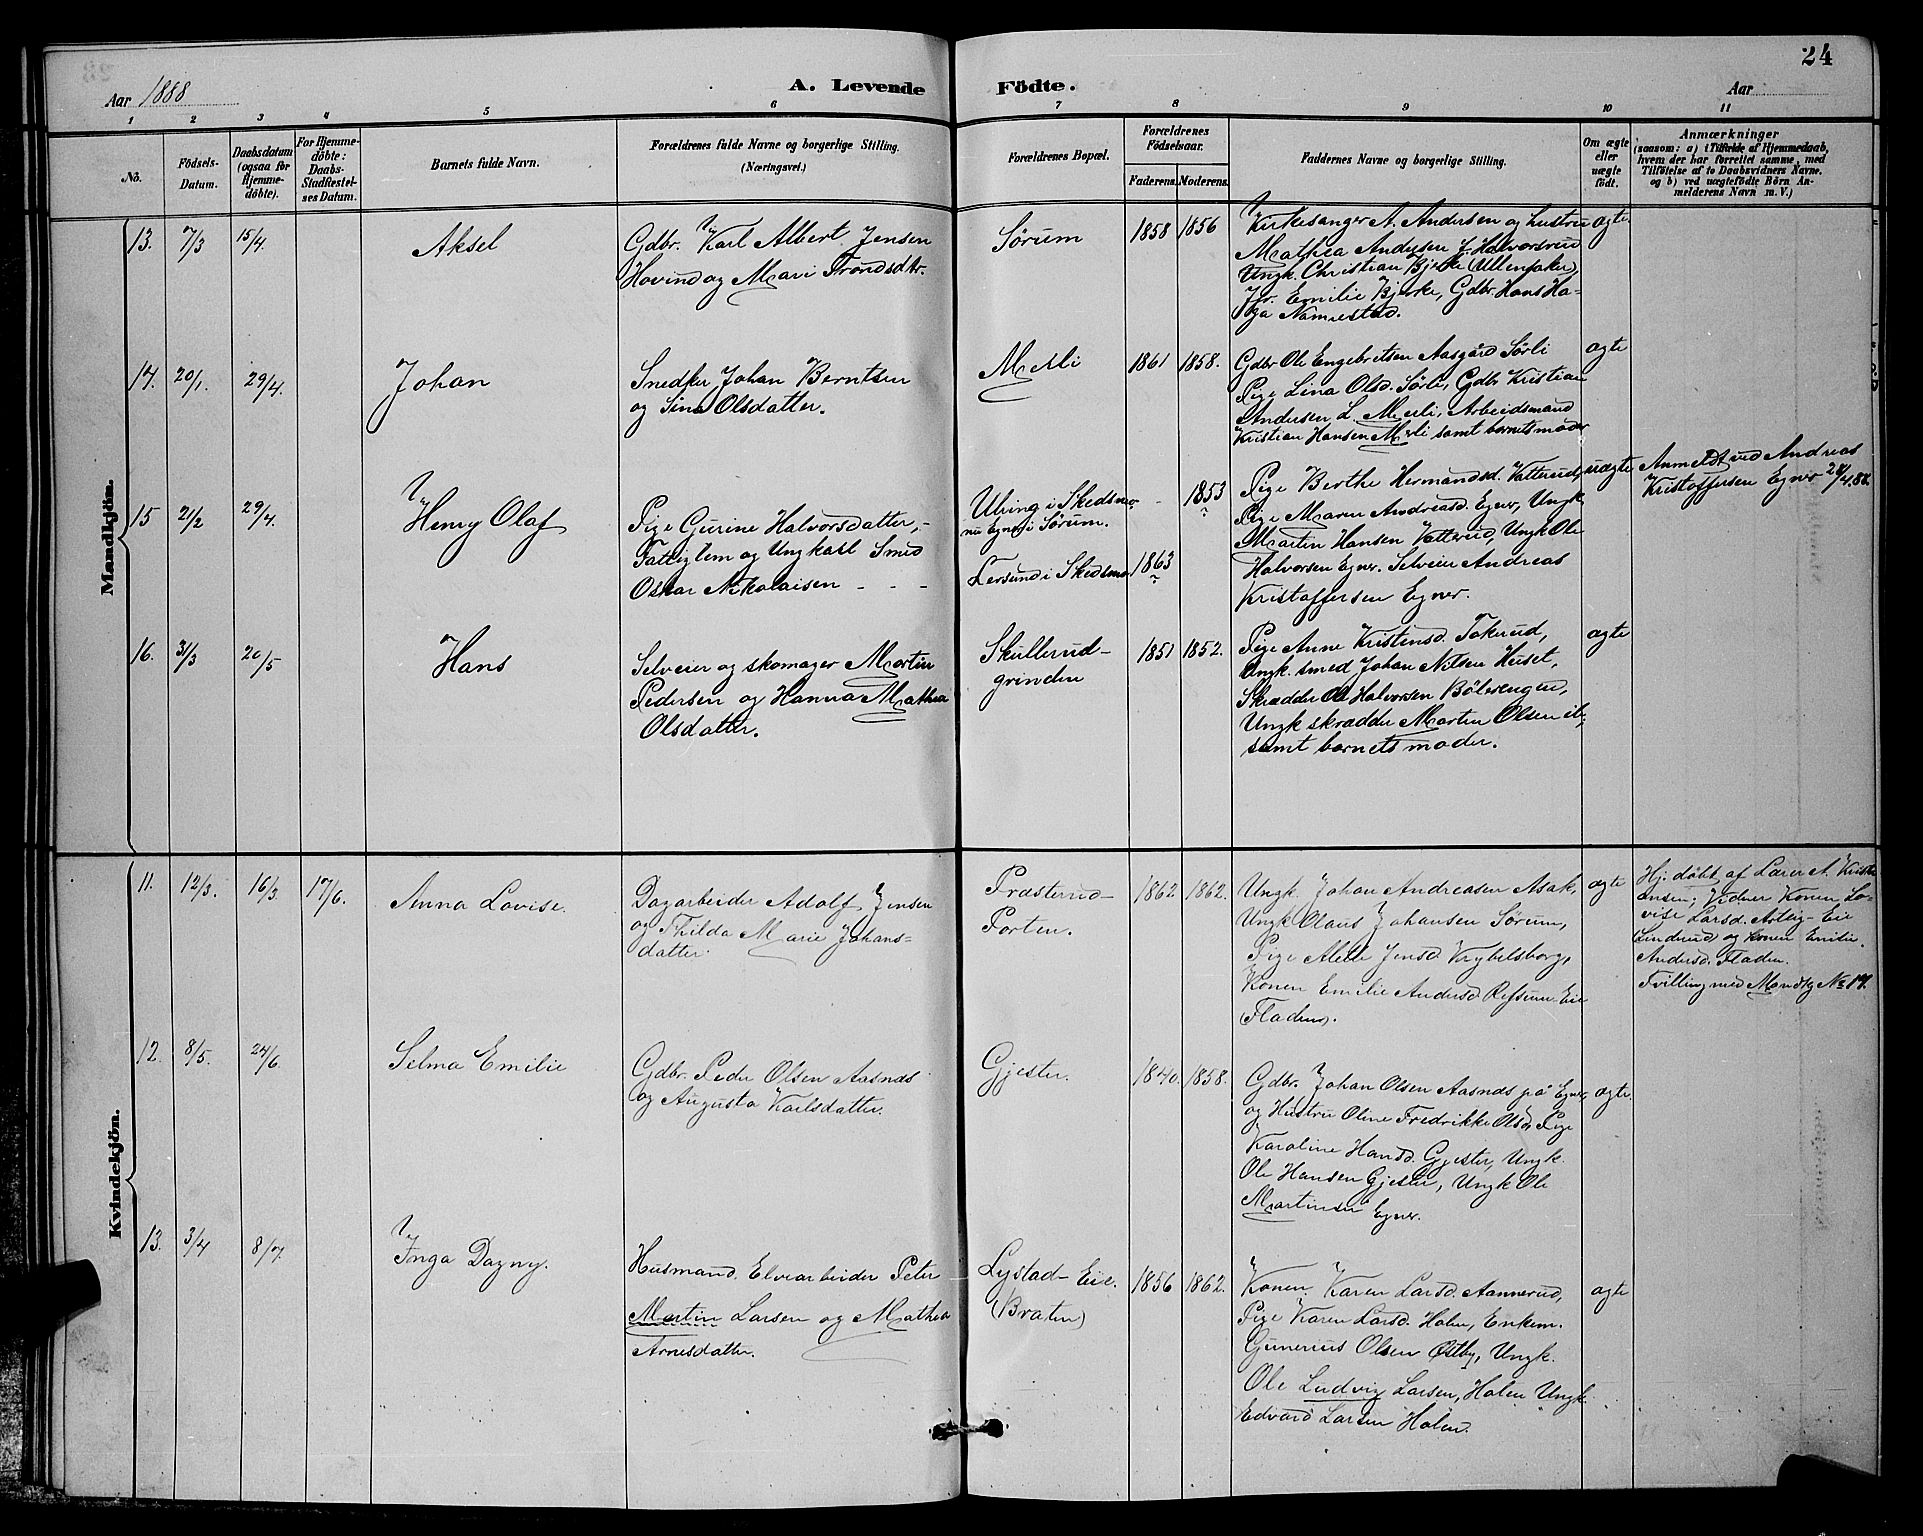 24
Aar 1888
A. Levende Födte.
Aar
1 2 3 4 5 6 7 8 9 10 11
No.
Födsels-
Datum.
Daabsdatum
(ogsaa for
Hjemme-
döbte).
For Hjemme-
döbte:
Daabs-
Stadfestel-
ses Datum.
Barnets fulde Navn.
Forældrenes fulde Navne og borgerlige Stilling.
(Næringsvei.)
Forældrenes Bopæl.
Forældrenes
Födselsaar.
Faderens. Moderens.
Faddernes Navne og borgerlige Stilling.
Om ægte
eller
uægte
födt.
Anmærkninger
(saasom: a) i Tilfælde af Hjemmedaab,
hvem der har forrettet samme, med
Tilföielse af to Daabsvidners Navne,
og b) ved uægtefödte Börn An-
melderens Navn m. V.)
Mandkjön.
13. 7/3 15/4. Aksel
Gdbr. Karl Albert Jensen
Hovind og Mari Trondsdtr.
Sørum 1858 1856
Kirkesanger A. Andersen og hustru
Mathea Andersen f. Halvorsrud
Ungk. Christian Bjerke (Ullensaker),
Jfr. Emilie Bjerke, Gdbr. Hans Ha-
ga Namnestad.
ægte
14. 20/1. 29/4. Johan
Snedker Johan Berntsen
og Sina Olsdatter.
Merli 1861 1858.
Gdbr Ole Engebretsen Aasgård Sørli
Pige Lina Olsd. Sørli, Gdbr Kristian
Andersen L. Merli, Arbeidsmand
Kristian Hansen Merli samt barnets moder
ægte
15 2/2 29/4. Henry Olaf
Pige Gurine Halvorsdatter,
Fattiglem og Ungkarl Smed
Oskar Nikolaisen - - -
Ulring i Skedsmo,
nu Egner i Sørum.
Lersund i Skedsmo
- 1853
1863
Pige Berthe Hermandsd. Vatterud,
Pige Maren Andreasd. Egner, Ungk
Martin Hansen Vatterud, Ungk Ole
Halvorsen Egner. Selveier Andreas
Kristoffersen Egner.
uægte
Anmeldt ved Andreas
Kristoffersen Egner 28/4.88.
16. 3/3 20/5 Hans
Selveier og skomager Martin
Pedersen og Hanna Mathea
Olsdatter.
Skullerud-
grinden
1851 1852.
Pige Anne Kristensd. Tokerud,
Ungk. smed Johan Nilsen Huset,
Skrædder Ole Halvorsen Bölerengen,
Ungk skrædder Morten Olsen ib.,
samt barnets moder.
ægte
Kvindekjön.
11. 12/3. 16/3 17/6. Anna Lovise.
Dagarbeider Adolf Jensen
og Thilda Marie Johans-
datter.
Præsterud-
Porten.
1862 1862.
Ungk. Johan Andreasen Asak,
Ungk Olaus Johansen Sørum,
Pige Alette Jensd Krybelsborg,
Konen Emilie Andersd Refsum Eie
(Fladen).
ægte
Hj. døbt af Lærer A. Kristi-
ansen; Vidner Konen Lo-
vise Larsd. Asleig-Eie
(Lindrud) og konen Emilie
Andersd. Fladen.
Tvilling med Mandkj No 17.
12. 8/5. 24/6 Selma Emilie
Gdbr. Peder Olsen Aasnas
og Augusta Karlsdatter.
Gjester. 1840. 1858.
Gdbr. Johan Olsen Aasnas på Egner
og Hustru Oline Fredrikke Olsd, Pige
Karoline Hansd. Gjester, Ungk.
Ole Hansen Gjester, Ungk Ole
Martinsen Egner.
ægte.
13. 3/4 8/7 Inga Dagny.
Husmand. Elvearbeider Peter
Martin Larsen og Mathea
Arnesdatter.
Lystad-Eie.
(Braten)
1856 1862.
Konen. Karen Larsd. Aannerud,
Pige Karen Larsd. Holen, Enkem.
Gunerius Olsen Østby, Ungk.
Ole Ludvig Larsen, Holen Ungk.
Edvard Larsen Holen.
ægte